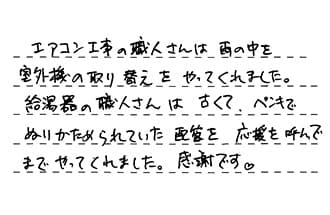 エアコン工事の職人さんは 雨の中を
室外機の取り替えを やってくれました。
給湯器の職人さんは 古くて、ペンキで
ぬりかためられていた 配管を 応援を呼んで
まで やってくれました。感謝です♡